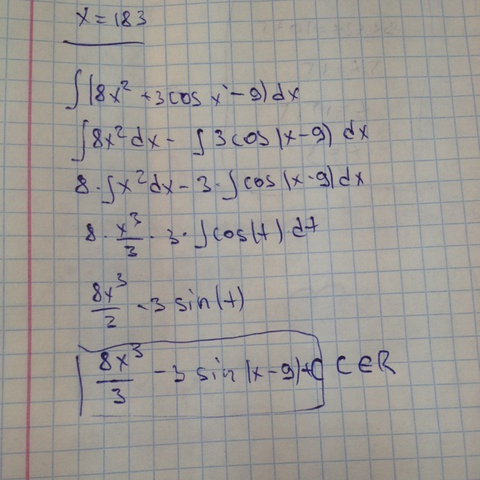 x = 183
∫(8x² + 3cos x - 9)dx
∫8x²dx - ∫3cos(x-9) dx
8·∫x²dx - 3·∫cos(x-9)dx
8·x³/3 - 3·∫cos(t) dt
8x³/2 - 3 sin(t)
8x³/3 - 3 sin(x-9)+C C∈R